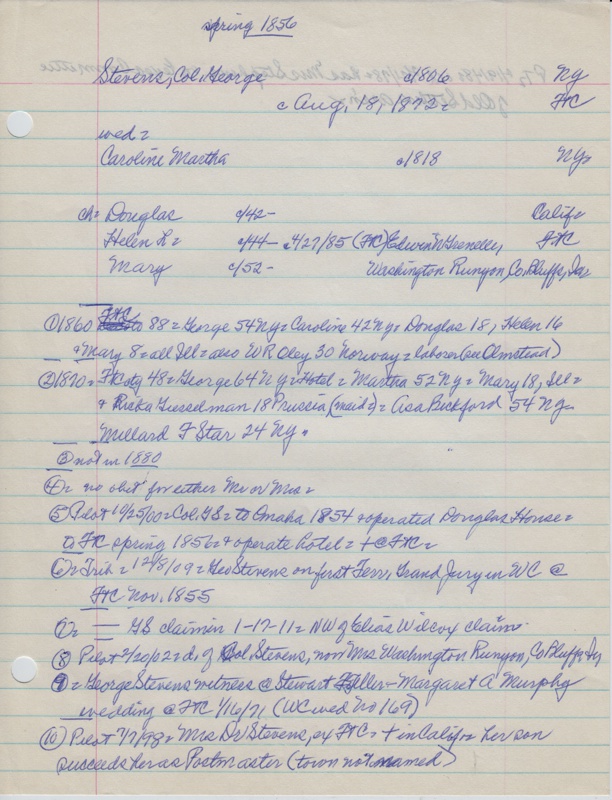 spring 1856
Stevens, Col. George c/1806 Ny
c Aug. 18, 1872= FtC
wed=
Caroline Martha c/1818 Ny=
ch= Douglas c/42- Calif=
Helen L= c/44- 4/27/85 (FtC) Edwin N Grenelle, FtC
Mary c/52- Washington Runyon, Co. Bluffs, Ia=
① 1860 FtC 88= George 54 Ny= Caroline 42 Ny= Douglas 18, Helen 16
+ Mary 8= all Ill= also W R Oley 30 Norway= laborer (see Olmstead)
② 1870= FtC dtg 48= George 64 Ny= Hotel= Martha 52 Ny= Mary 18, Ill=
+ Ricka Giesselman 18 Prussia (maid?)= Asa Bickford 54 Ny=
Millard F Star 24 Ny=
③ not in 1880
④= no obit for either Mr or Mrs=
⑤ Pilot 10/25/00= Col. GS= to Omaha 1854 + operated Douglas House=
to FtC spring 1856= + operate hotel= + @ FtC=
⑥= Trib= 12/8/09= Geo Stevens on first Terr. Grand Jury in WC @
FtC Nov. 1855
⑦= GS claim in 1-17-11= NW of Elias Wilcox claim=
⑧ Pilot 2/20/02= d. of Col Stevens, now Mrs Washington Runyon, Co. Bluffs, Ia
⑨= George Stevens witness @ Stewart Fuller- Margaret A Murphy
wedding @ FtC 1/16/71 (WC wed No 169)
⑩ Pilot 7/7/98= Mrs Dr Stevens, ex FtC= + in Calif= her son
succeeds her as Postmaster (town not named)